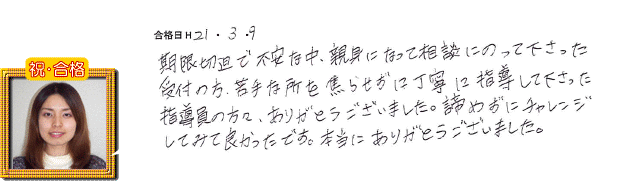 合格日H21・3・9
祝・合格
期限切迫で不安な中、親身になって相談にのって下さった
受付の方、苦手な所を焦らせずに丁寧に指導して下さった
指導員の方々、ありがとうございました。諦めずにチャレンジ
してみて良かったです。本当にありがとうございました。